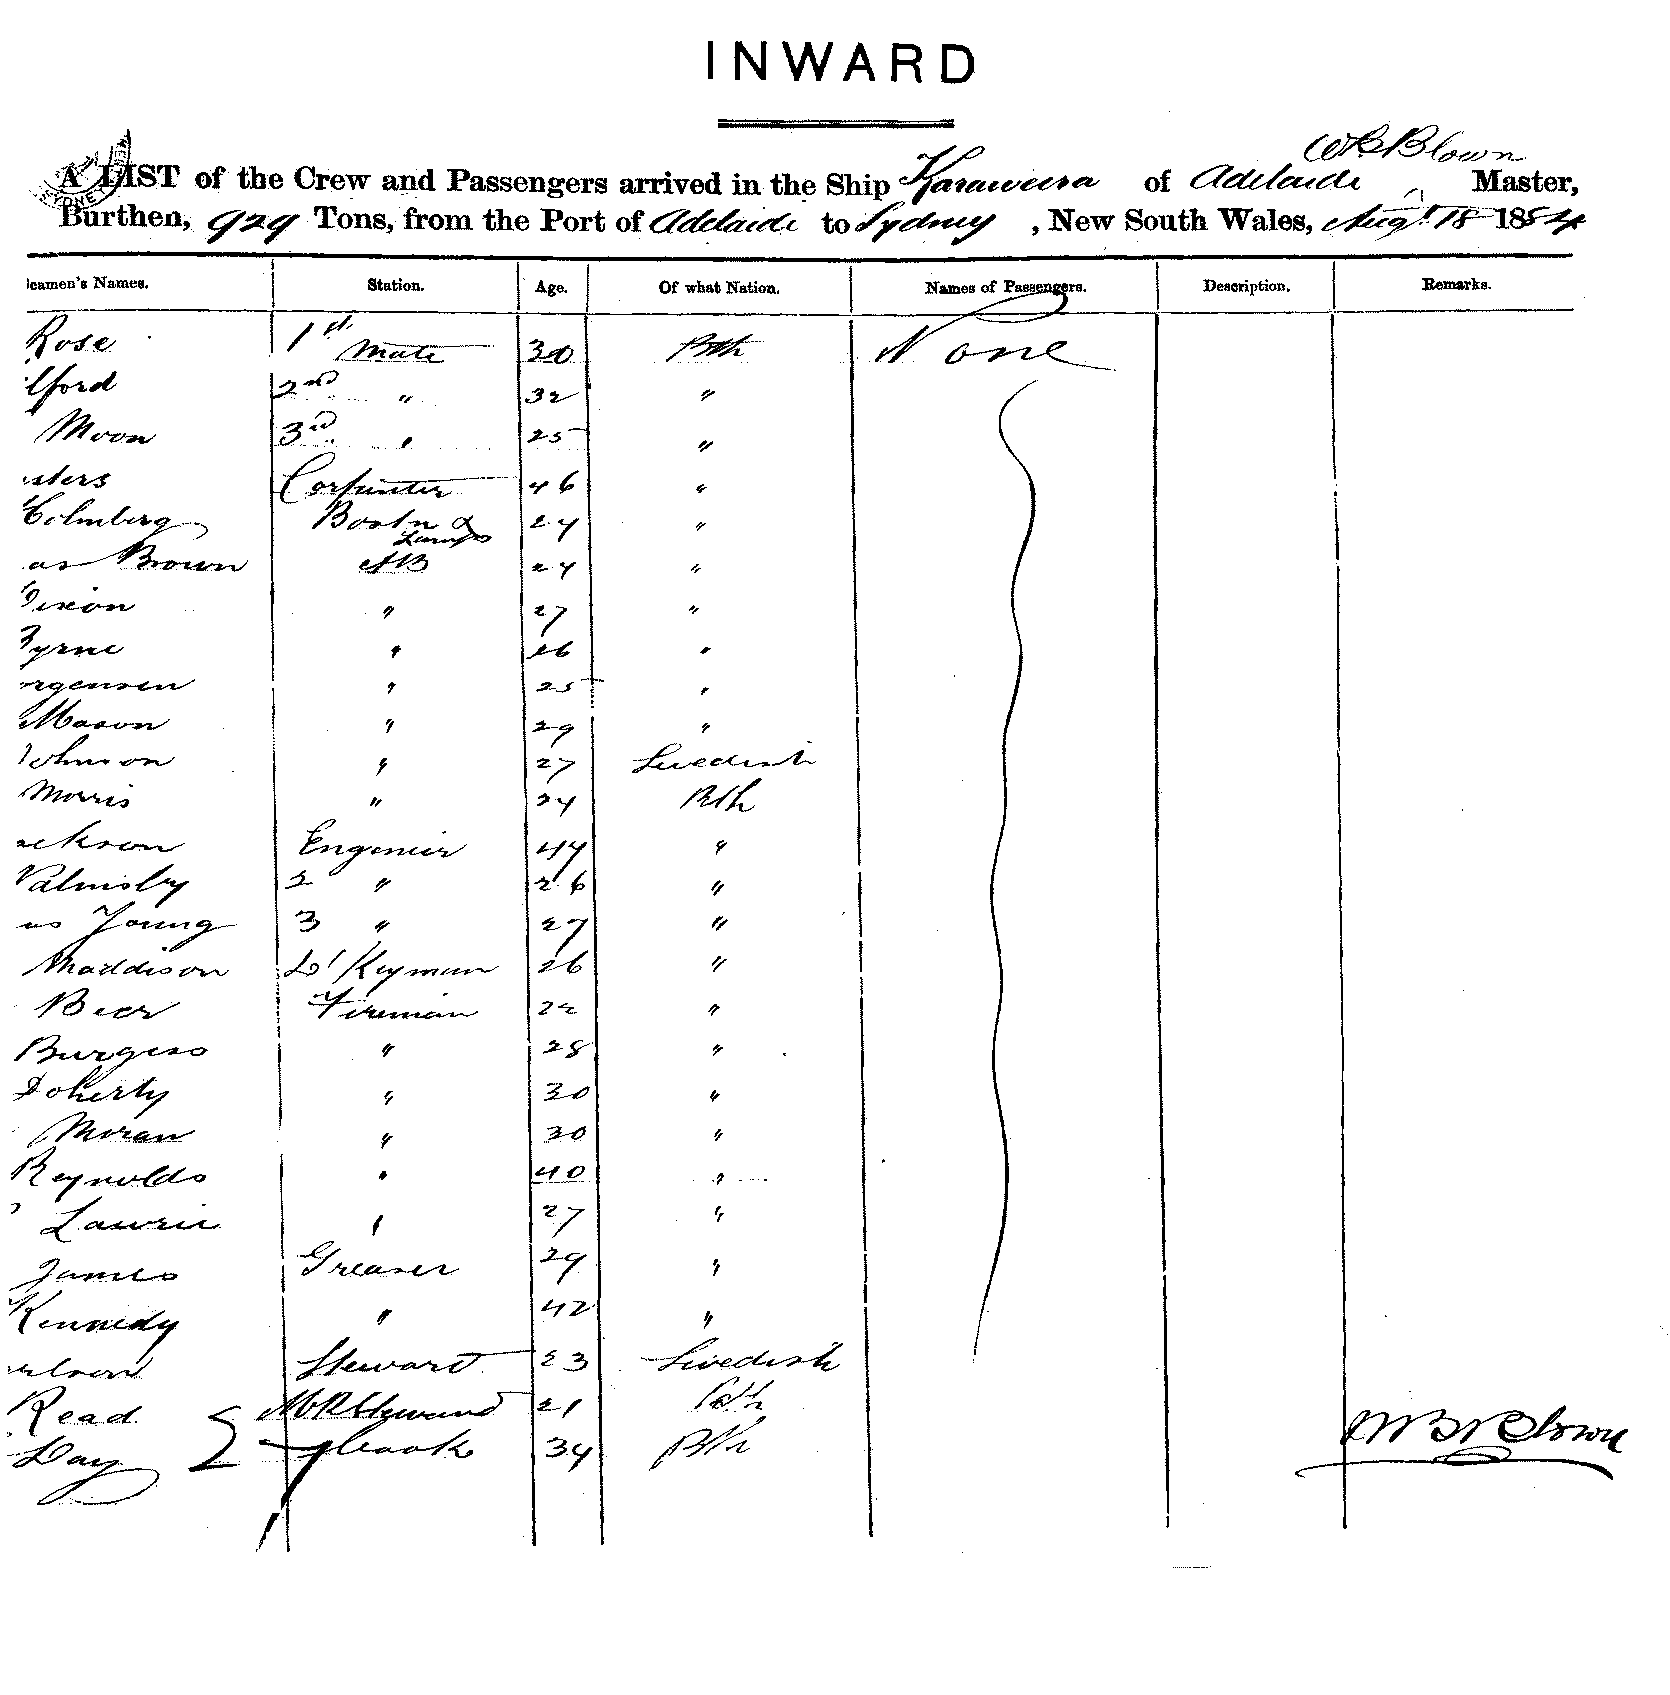 INWARD
W B Blown
A LIST of the Crew and Passengers arrived in the Ship Karaweera of Adelaide, Master,
Burthen, 929 Tons, from the Port of Adelaide to Sydney, New South Wales, Augt. 18 1884
eamen's Names. Station. Age. Of what Nation. Names of Passengers. Description. Remarks.
Rose 1st Mate 30 Bth None
lford 2nd " 32 "
Moon 3rd " 25 "
sters Carpinter 46 "
Holmberg Boatn & Lamps 24 "
as Brown AB 24 "
Dixon " 27 "
Byrne " 26 "
rgensen " 25 "
Mason " 29 "
Johnson " 27 Swedish
Morris " 24 Bth
ackson Engenier 44 "
Walmsley 2 " 26 "
as Young 3 " 27 "
Maddison Dy Keyman 26 "
Beer Fireman 22 "
Burgess " 28 "
Doherty " 30 "
Moran " 30 "
Reynolds " 40 "
Lawrie " 27 "
James Greaser 29 "
Kennedy " 42 "
arlson Steward 23 Swedish
Read 21 Bth
Day Cook 34 Bth
W B Blown